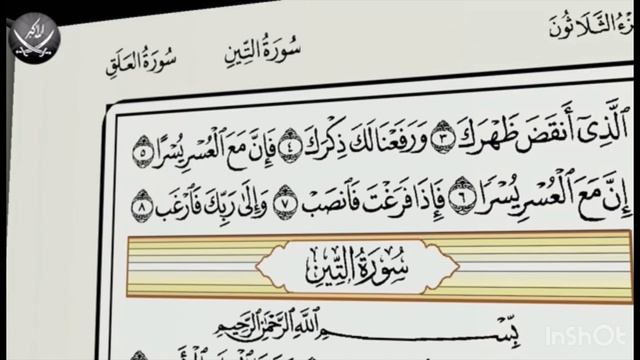 سُورَةُ العَلَقِ سُورَةُ التِّينِ الثَّلَاثُونَ
الَّذِىٓ أَنقَضَ ظَهْرَكَ ٣ وَرَفَعْنَا لَكَ ذِكْرَكَ ٤ فَإِنَّ مَعَ الْعُسْرِ يُسْرًا ٥
إِنَّ مَعَ الْعُسْرِ يُسْرًا ٦ فَإِذَا فَرَغْتَ فَانصَبْ ٧ وَإِلَىٰ رَبِّكَ فَارْغَب ٨
سُورَةُ التِّينِ
بِسْمِ اللَّهِ الرَّحْمَٰنِ الرَّحِيمِ
InShOt